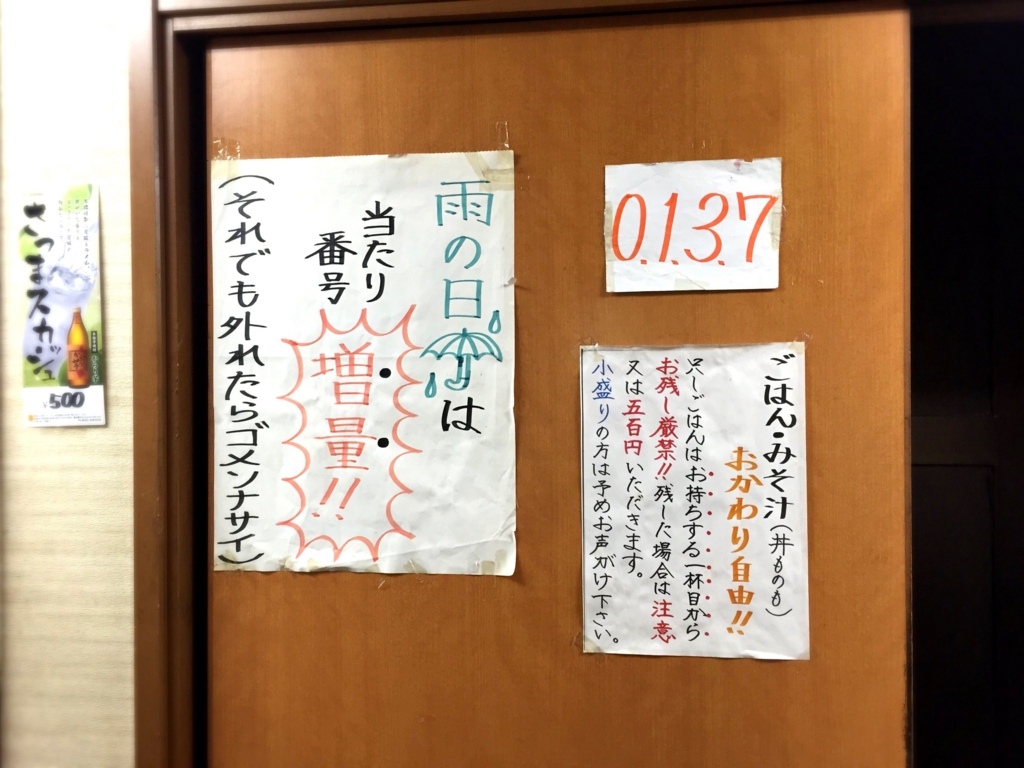 雨の日は
当たり
番号
増量!!
(それでも外れたらゴメンナサイ)
0.1.3.7
ごはん・みそ汁(丼ものも)
おかわり自由!!
只しごはんはお持ちする一杯目から
お残し厳禁!!残した場合は注意
又は五百円いただきます。
小盛りの方は予めお声がけ下さい。
さつまスカッシュ
¥500